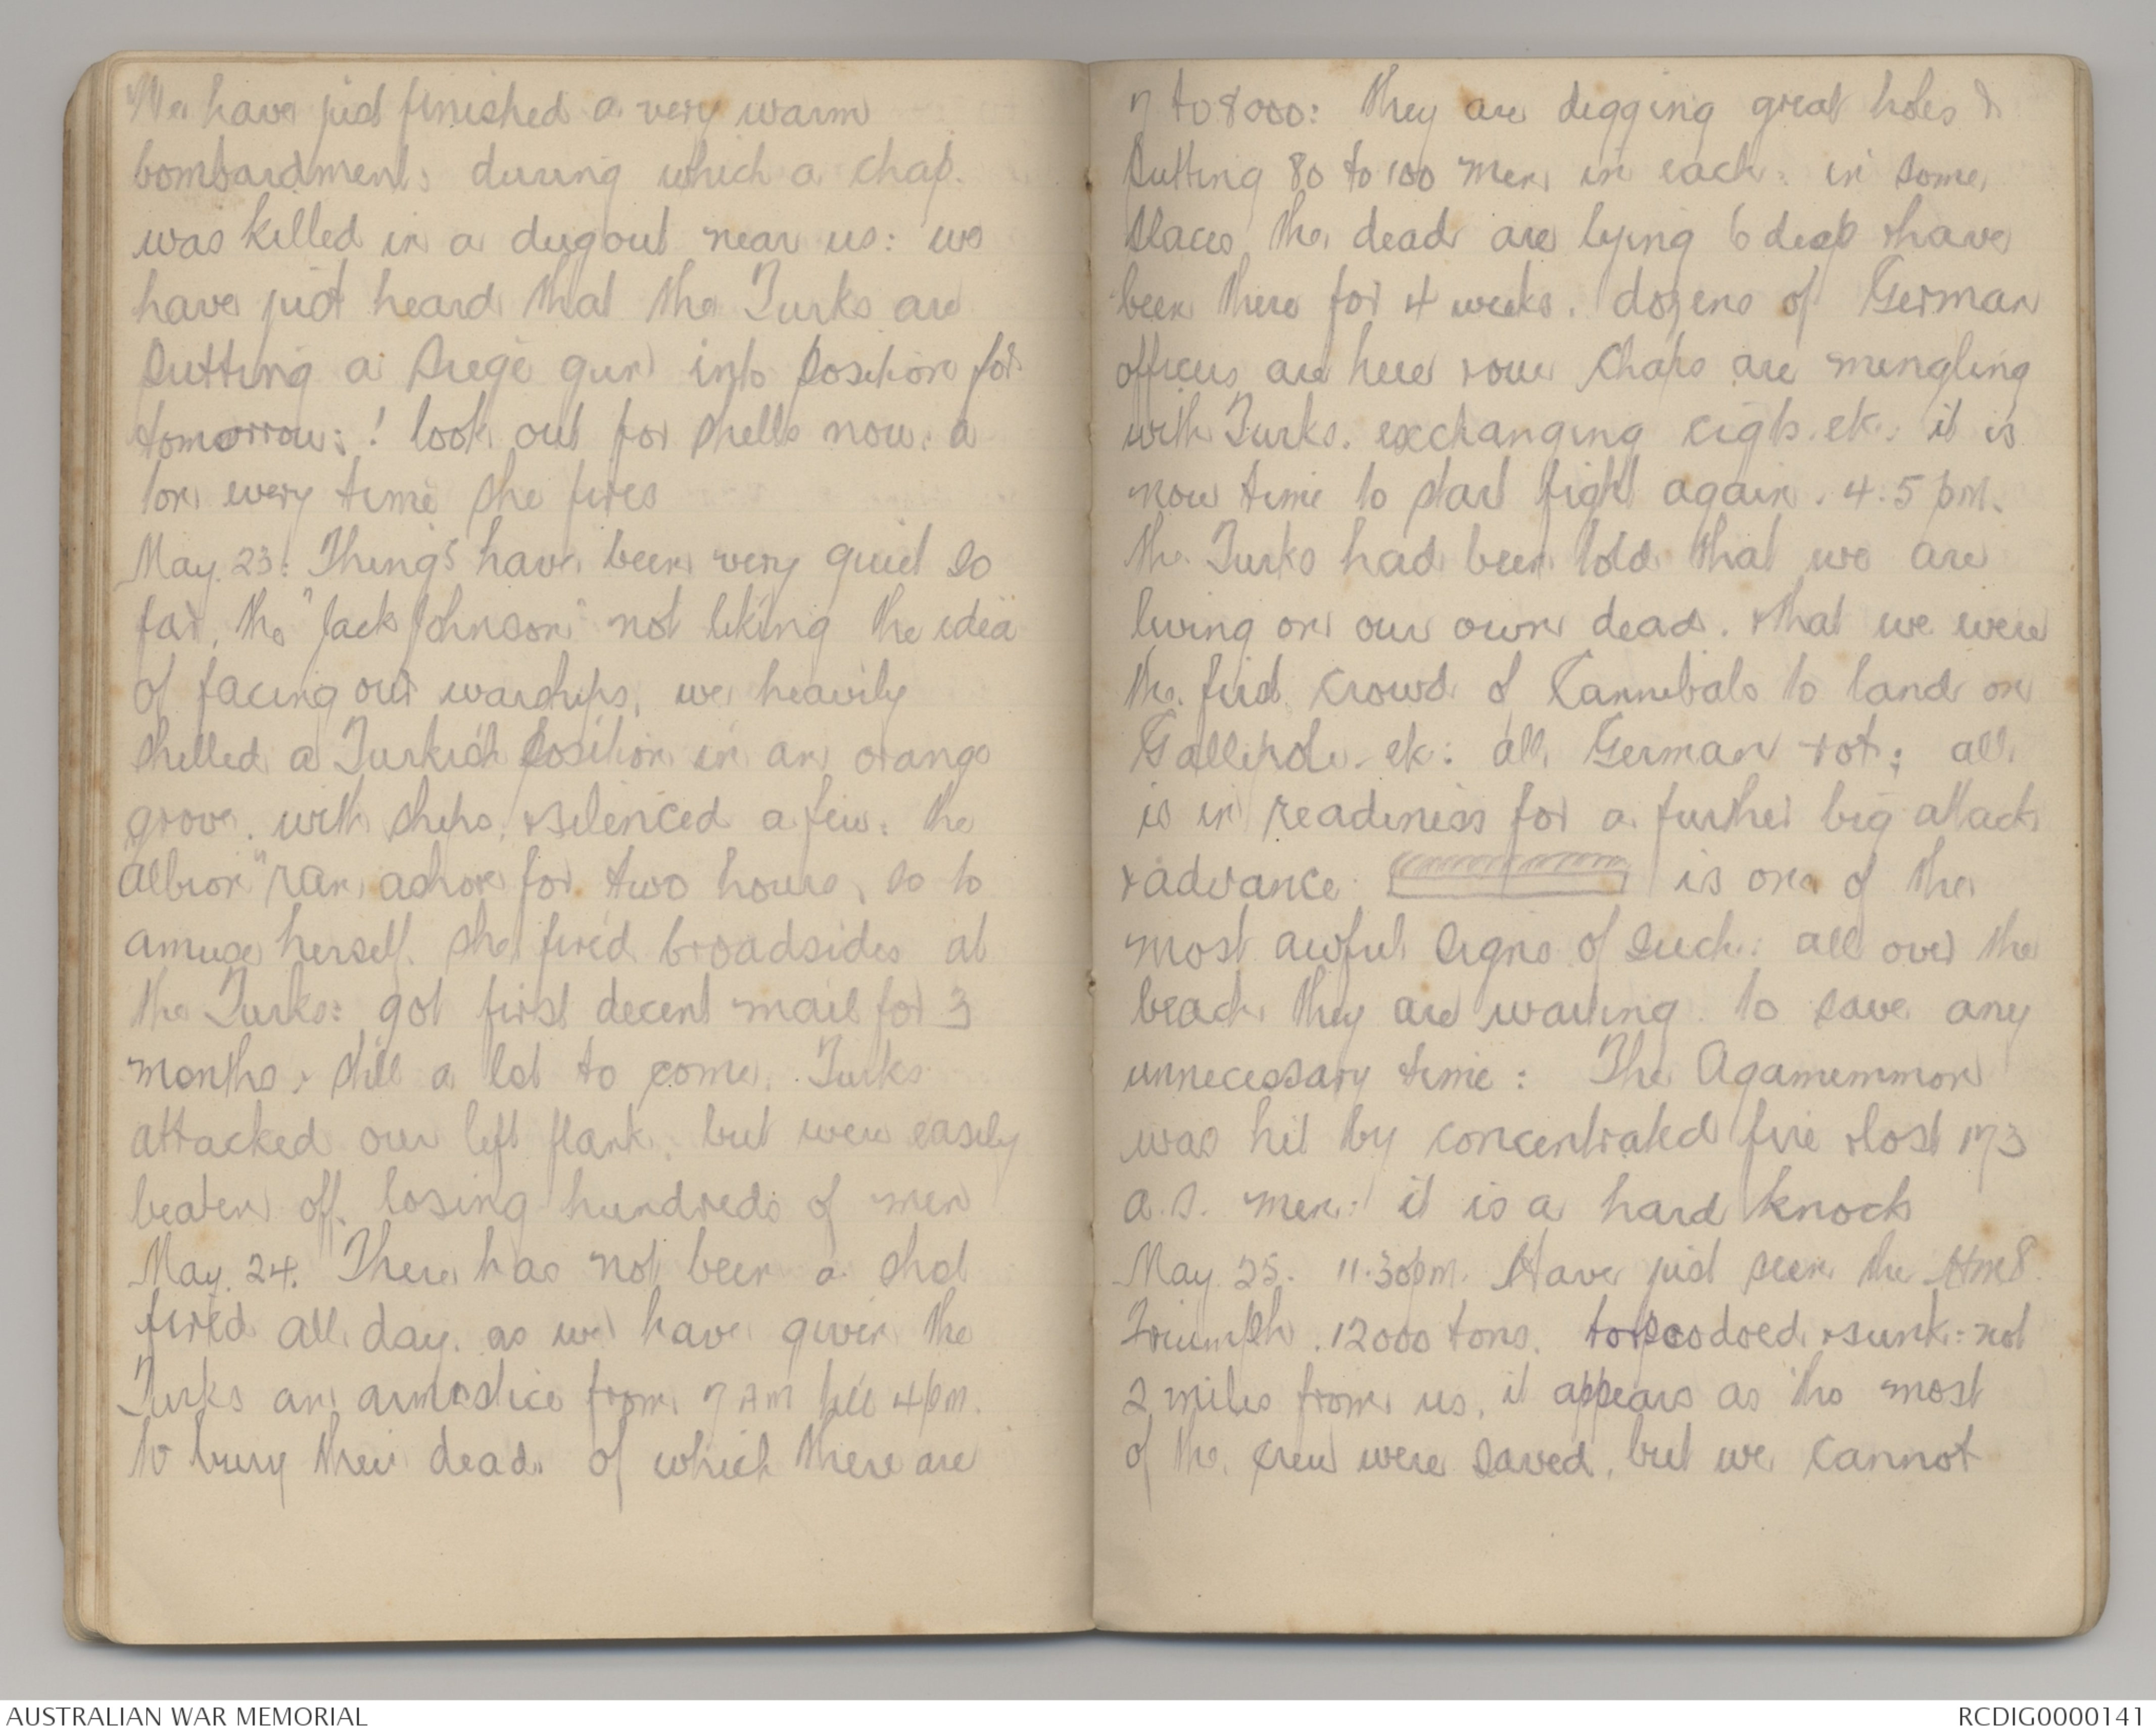 We have just finished a very warm
bombardment: during which a chap.
was killed in a dugout near us: we
have just heard that the Turks are
putting a siege gun into position for
tomorrow: ! look out for shells now: a
ton every time she fires
May. 23: Things have been very quiet so
far, the "Jack Johnson" not liking the idea
of facing our warships, we heavily
shelled a Turkish position in an orange
grove. with ships, & silenced a few. the
Albion" ran ashore for two hours, so to
amuse herself. she fired broadsides at
the Turks: got first decent mail for 3
months, & still a lot to come. Turks
attacked our left flank, but were easily
beaten off. losing hundreds of men
May. 24. There has not been a shot
fired all day. as we have given the
Turks an armistice from 7 AM till 4 pm.
to bury their dead. of which there are
7 to 8000: they are digging great holes &
putting 80 to 100 men in each: in some
places the dead are lying 6 deep & have
been there for 4 weeks. dozens of German
officers are here & our chaps are mingling
with Turks. exchanging cigts. etc: it is
now time to start fight again. 4.5 pm.
the Turks had been told that we are
living on our own dead. & that we were
the first crowd of Cannibals to land on
Gallipoli. etc: all German rot: all
is in readiness for a further big attack
& advance is one of the
most awful signs of such: all over the
beach they are waiting. to save any
unnecessary time: The Agamemmon
was hit by concentrated fire & lost 173
a.s. men: it is a hard knock
May. 25. 11.30pm. Have just seen the HMS.
Triumph. 12000 tons. torpeodoed & sunk: not
2 miles from us, it appears as tho most
of the crew were saved, but we cannot
AUSTRALIAN WAR MEMORIAL
RCDIG0000141